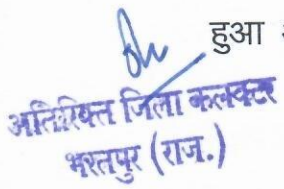 हुआ
अतिरिक्त जिला कलक्टर
भरतपुर (राज.)